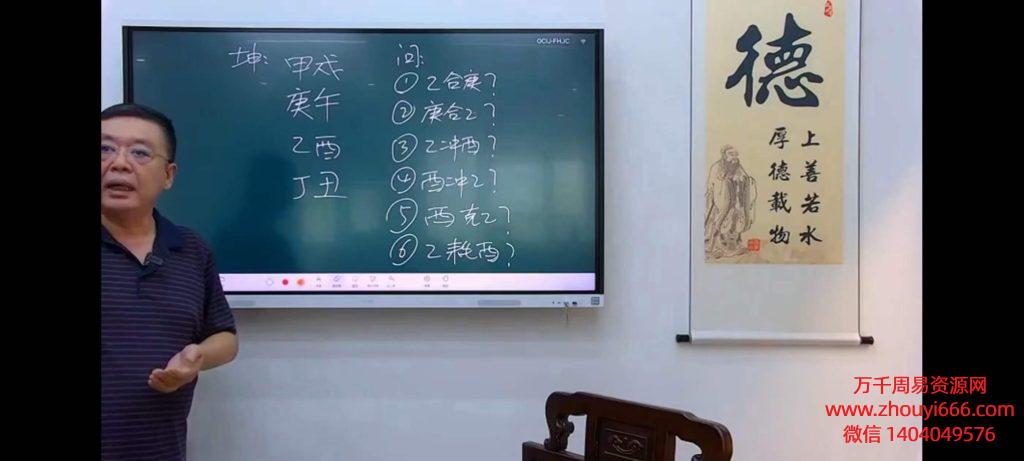 QCIJ-FHJC
坤:
甲戌
庚午
乙酉
丁丑
问:
①乙合庚?
②庚合乙?
③乙冲酉?
④酉冲乙?
⑤酉克乙?
⑥乙耗酉?
德
上善若水
厚德载物
万千周易资源网
www.zhouyi666.com
微信 1404049576